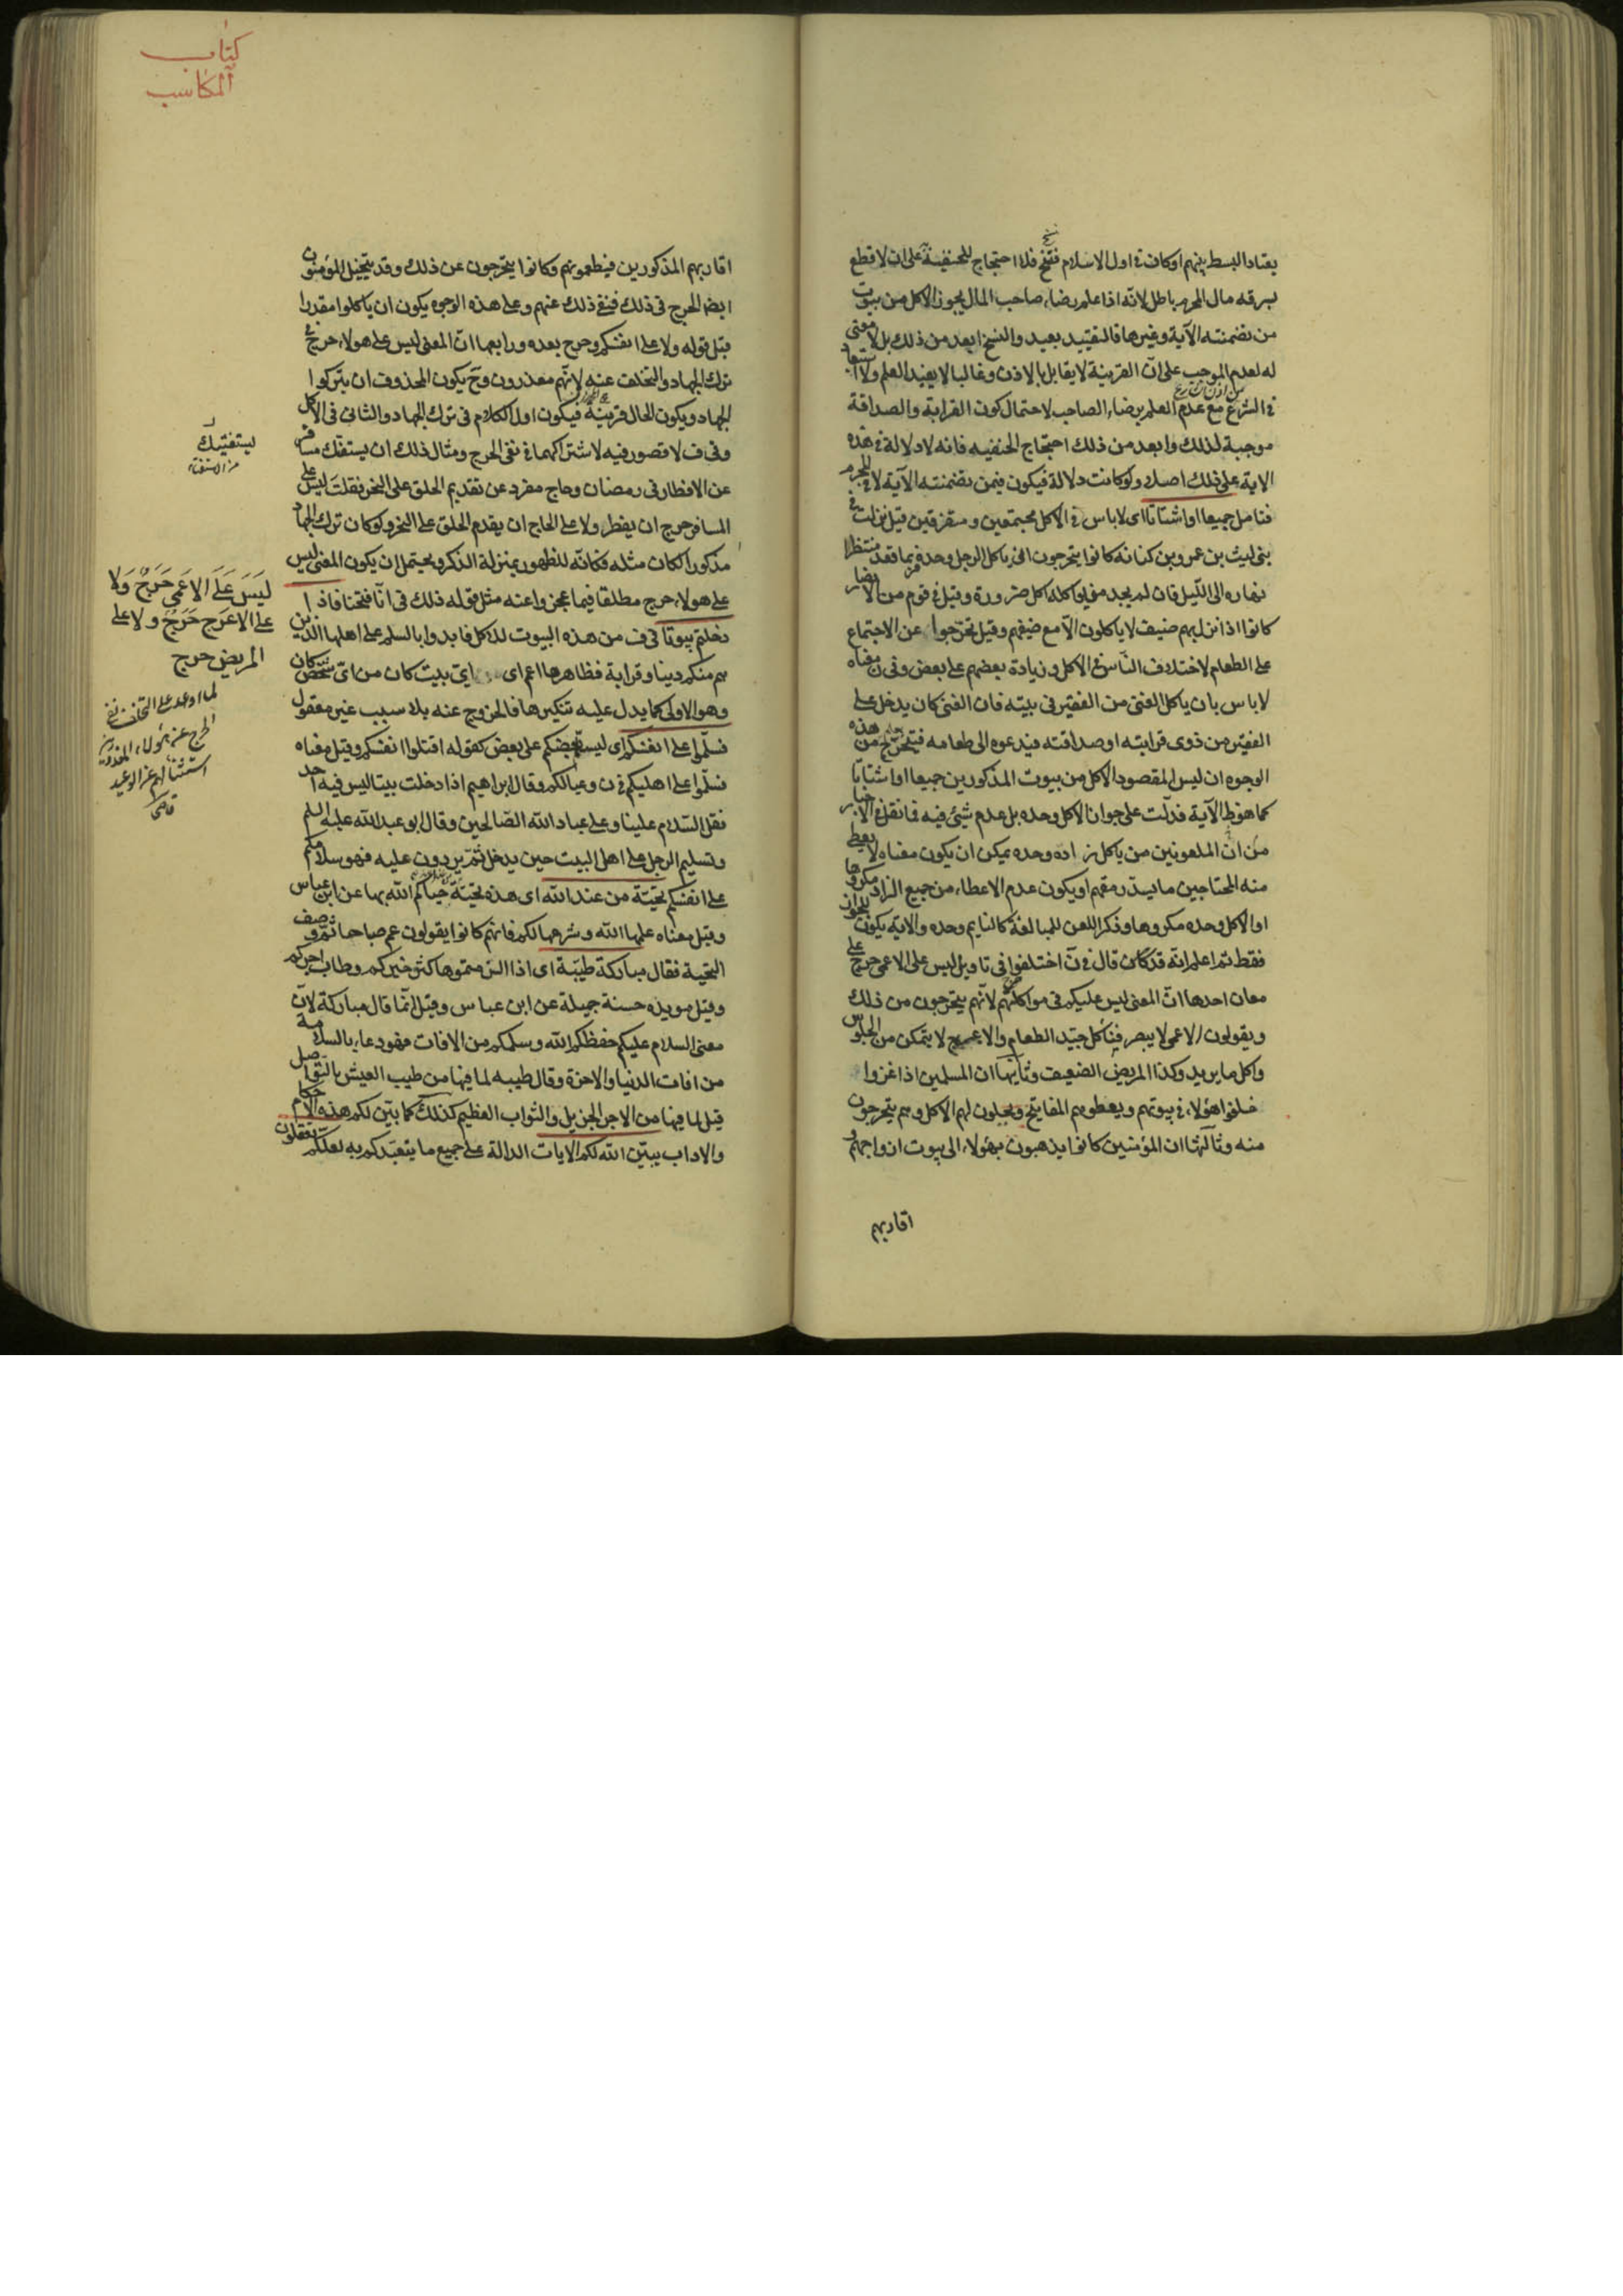 يعتاد البسط بينهم او كان في اول الاسلام فنسخ فلا احتجاج للحنفية على ان لا قطع
بسرقة مال المحرم باطل لانه اذا علم رضاء صاحب المال يجوز الاكل من بيوت
من تضمنته الآية وغيرها فالتقييد بعيد والنسخ ابعد من ذلك بل لا معنى
له لعدم الموجب على ان القرينة لا يقابل بالاذن وغالبا لا يفيد العلم ولا استبعاد
في الشرع مع عدم العلم برضاء الصاحب لاحتمال كون القرابة والصداقة
موجبة لذلك وابعد من ذلك احتجاج الحنفيه فانه لا دلالة في هذه
الاية على ذلك اصلا ولو كانت دلالة فيكون فيمن تضمنته الآية لا المحرم
فتامل جميعا او اشتاتا اى لا باس في الاكل مجتمعين ومتفرقين قيل نزلت في
بنى ليث بن عمرو بن كنانه كانوا يتحرجون ان ياكل الرجل وحده فربما قعد منتظرا
نهاره الى الليل فان لم يجد من يواكله اكل ضرورة وقيل في قوم من الانصار
كانوا اذا نزل بهم ضيف لا ياكلون الا مع ضيفهم وقيل تحرجوا عن الاجتماع
على الطعام لاختلاف الناس في الاكل وزيادة بعضهم على بعض وفى ن معناه
لا باس بان ياكل الغنى من الفقير فى بيته فان الغنى كان يدخل على
الفقير من ذوى قرابته او صداقته فيدعوه الى طعامه فيتحرج من هذه
الوجوه ان ليس المقصود الاكل من بيوت المذكورين جميعا او اشتاتا
كما هو ظ الآية فدلت على جواز الاكل وحده بل عدم شئ فيه فما نقل في الاخبار
من ان الملعونين من ياكل زاده وحده يمكن ان يكون معناه لا يعطى
منه المحتاجين ما يسد رمقهم او يكون عدم الاعطاء من جميع الزاد مكروها
او الاكل وحده مكروها وذكر اللعن للمبالغة كالنايم وحده والاية يكون للجواز
فقط ثم اعلم انه قد كان قال في ن اختلفوا فى تاويل ليس على الاعمى حرج على
معان احدها ان المعنى ليس عليكم فى مواكلتهم لانهم يتحرجون من ذلك
ويقولون الاعمى لا يبصر فيأكل جيد الطعام والاعرج لا يتمكن من الجلوس
واكل ما يريد وكذا المريض الضعيف وثانيها ان المسلمين اذا غزوا
خلفوا هؤلاء في بيوتهم ويعطوهم المفاتيح ويحلون لهم الاكل وهم يتحرجون
منه وثالثها ان المؤمنين كانوا يذهبون بهؤلاء الى بيوت ازواجهم و
اقاربهم
كتاب
المكاسب
اقاربهم المذكورين فيطعمونهم وكانوا يتحرجون عن ذلك وقد يتخيل المؤمنون
ايضا الحرج فى ذلك فنفى ذلك عنهم وعلى هذه الوجوه يكون ان ياكلوا مقدرا
قبل قوله ولا على انفسكم وحرج بعده ورابعها ان المعنى ليس على هولاء حرج في
ترك الجهاد والتخلف عنه لانهم معذورون وح يكون المحذوف ان يتركوا
الجهاد ويكون الحال قرينة فيكون اول الكلام فى ترك الجهاد والثانى فى الاكل
وفى ف لا قصور فيه لاشتراكهما في نفى الحرج ومثال ذلك ان يستفتك مسافر
عن الافطار فى رمضان وحاج مفرد عن تقديم الحلق على النحر فقلت ليس على
المسافر حرج ان يفطر ولا على الحاج ان يقدم الحلق على النحر ولو كان ترك الجهاد
مذكورا لكان مثله فكانه للظهور بمنزلة الذكر ويحتمل ان يكون المعنى ليس
على هولاء حرج مطلقا فيما عجزوا عنه مثل قوله ذلك فى انا فتحنا فاذا
دخلتم بيوتا فى ف من هذه البيوت للاكل فابدوا بالسلم على اهلها الذين
هم منكم دينا وقرابة فظاهرها اعم اى اى بيت كان من اى شخص كان
وهو الاولى كما يدل عليه تنكيرها فالخروج عنه بلا سبب غير معقول
فسلموا على انفسكم اى ليسلم بعضكم على بعض كقوله اقتلوا انفسكم وقيل معناه
فسلموا على اهليكم في ن وعيالكم وقال ابراهيم اذا دخلت بيتا ليس فيه احد
فقل السلام علينا وعلى عباد الله الصالحين وقال ابو عبدالله عليه السلم
وتسليم الرجل على اهل البيت حين يدخل ثم يردون عليه فهو سلامكم
على انفسكم تحية من عند الله اى هذه تحية حياكم الله بها عن ابن عباس
وقيل معناه علمها الله وشرعها لكم فانهم كانوا يقولون عم صباحا ثم وصف
التحية فقال مباركة طيبة اى اذا التزمتموها كثر خيركم وطاب اجركم
وقيل مويده حسنة جميلة عن ابن عباس وقيل انما قال مباركة لان
معنى السلام عليكم حفظكم الله وسلمكم من الافات فهو دعاء بالسلامة
من افات الدنيا والاخرة وقال طيبه لما فيها من طيب العيش بالتواصل
قيل لما فيها من الاجر الجزيل والثواب العظيم كذلك كما بين لكم هذه الاحكام
والاداب يبين الله لكم الايات الدالة على جميع ما يتعبدكم به لعلكم تعقلون
يستفتيك
من الاستفتاء
لَيْسَ عَلَى الاعمى حَرَجٌ وَلا
على الاعرج حَرَجٌ ولا على
المريض حرج
لما اوعد على التخلف نفى
الحرج عن هؤلاء المعذورين
استثناء لهم عن الوعيد
قاضى